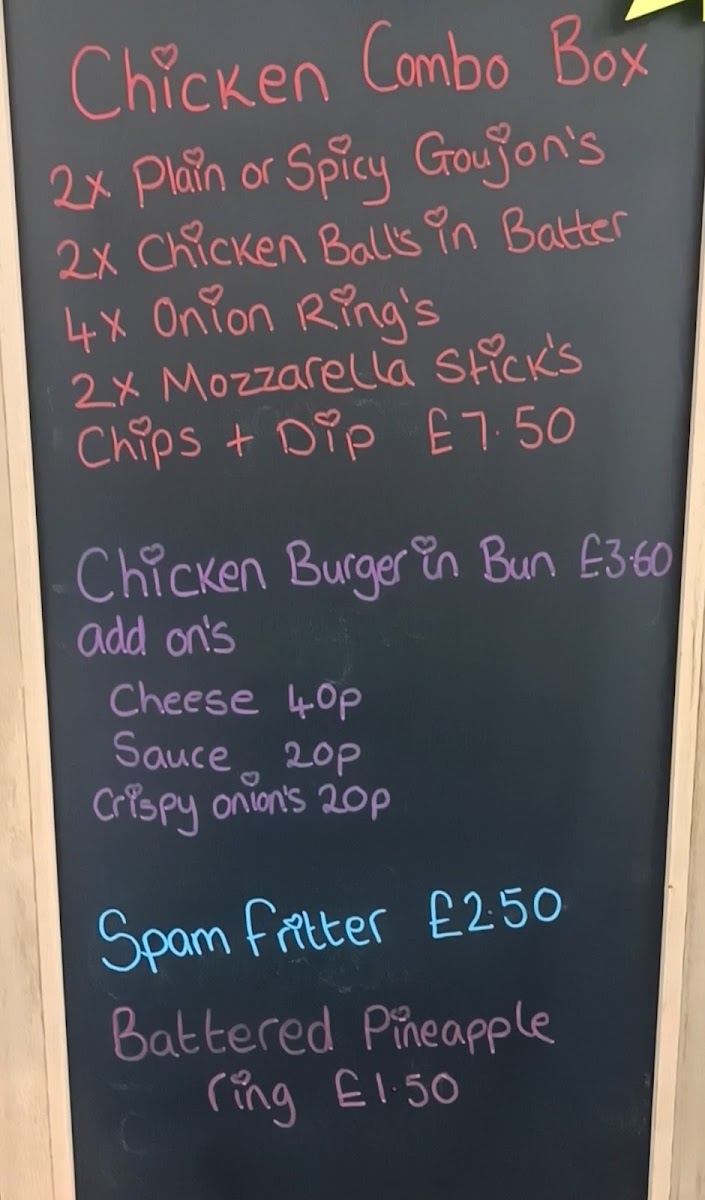 Chicken Combo Box
2x Plain or Spicy Goujon's
2x Chicken Ball's in Batter
4x Onion Ring's
2x Mozzarella Stick's
Chips + Dip £7.50
Chicken Burger in Bun £3.60
add on's
Cheese 40p
Sauce 20p
Crispy onion's 20p
Spam fritter £2.50
Battered Pineapple
ring £1.50